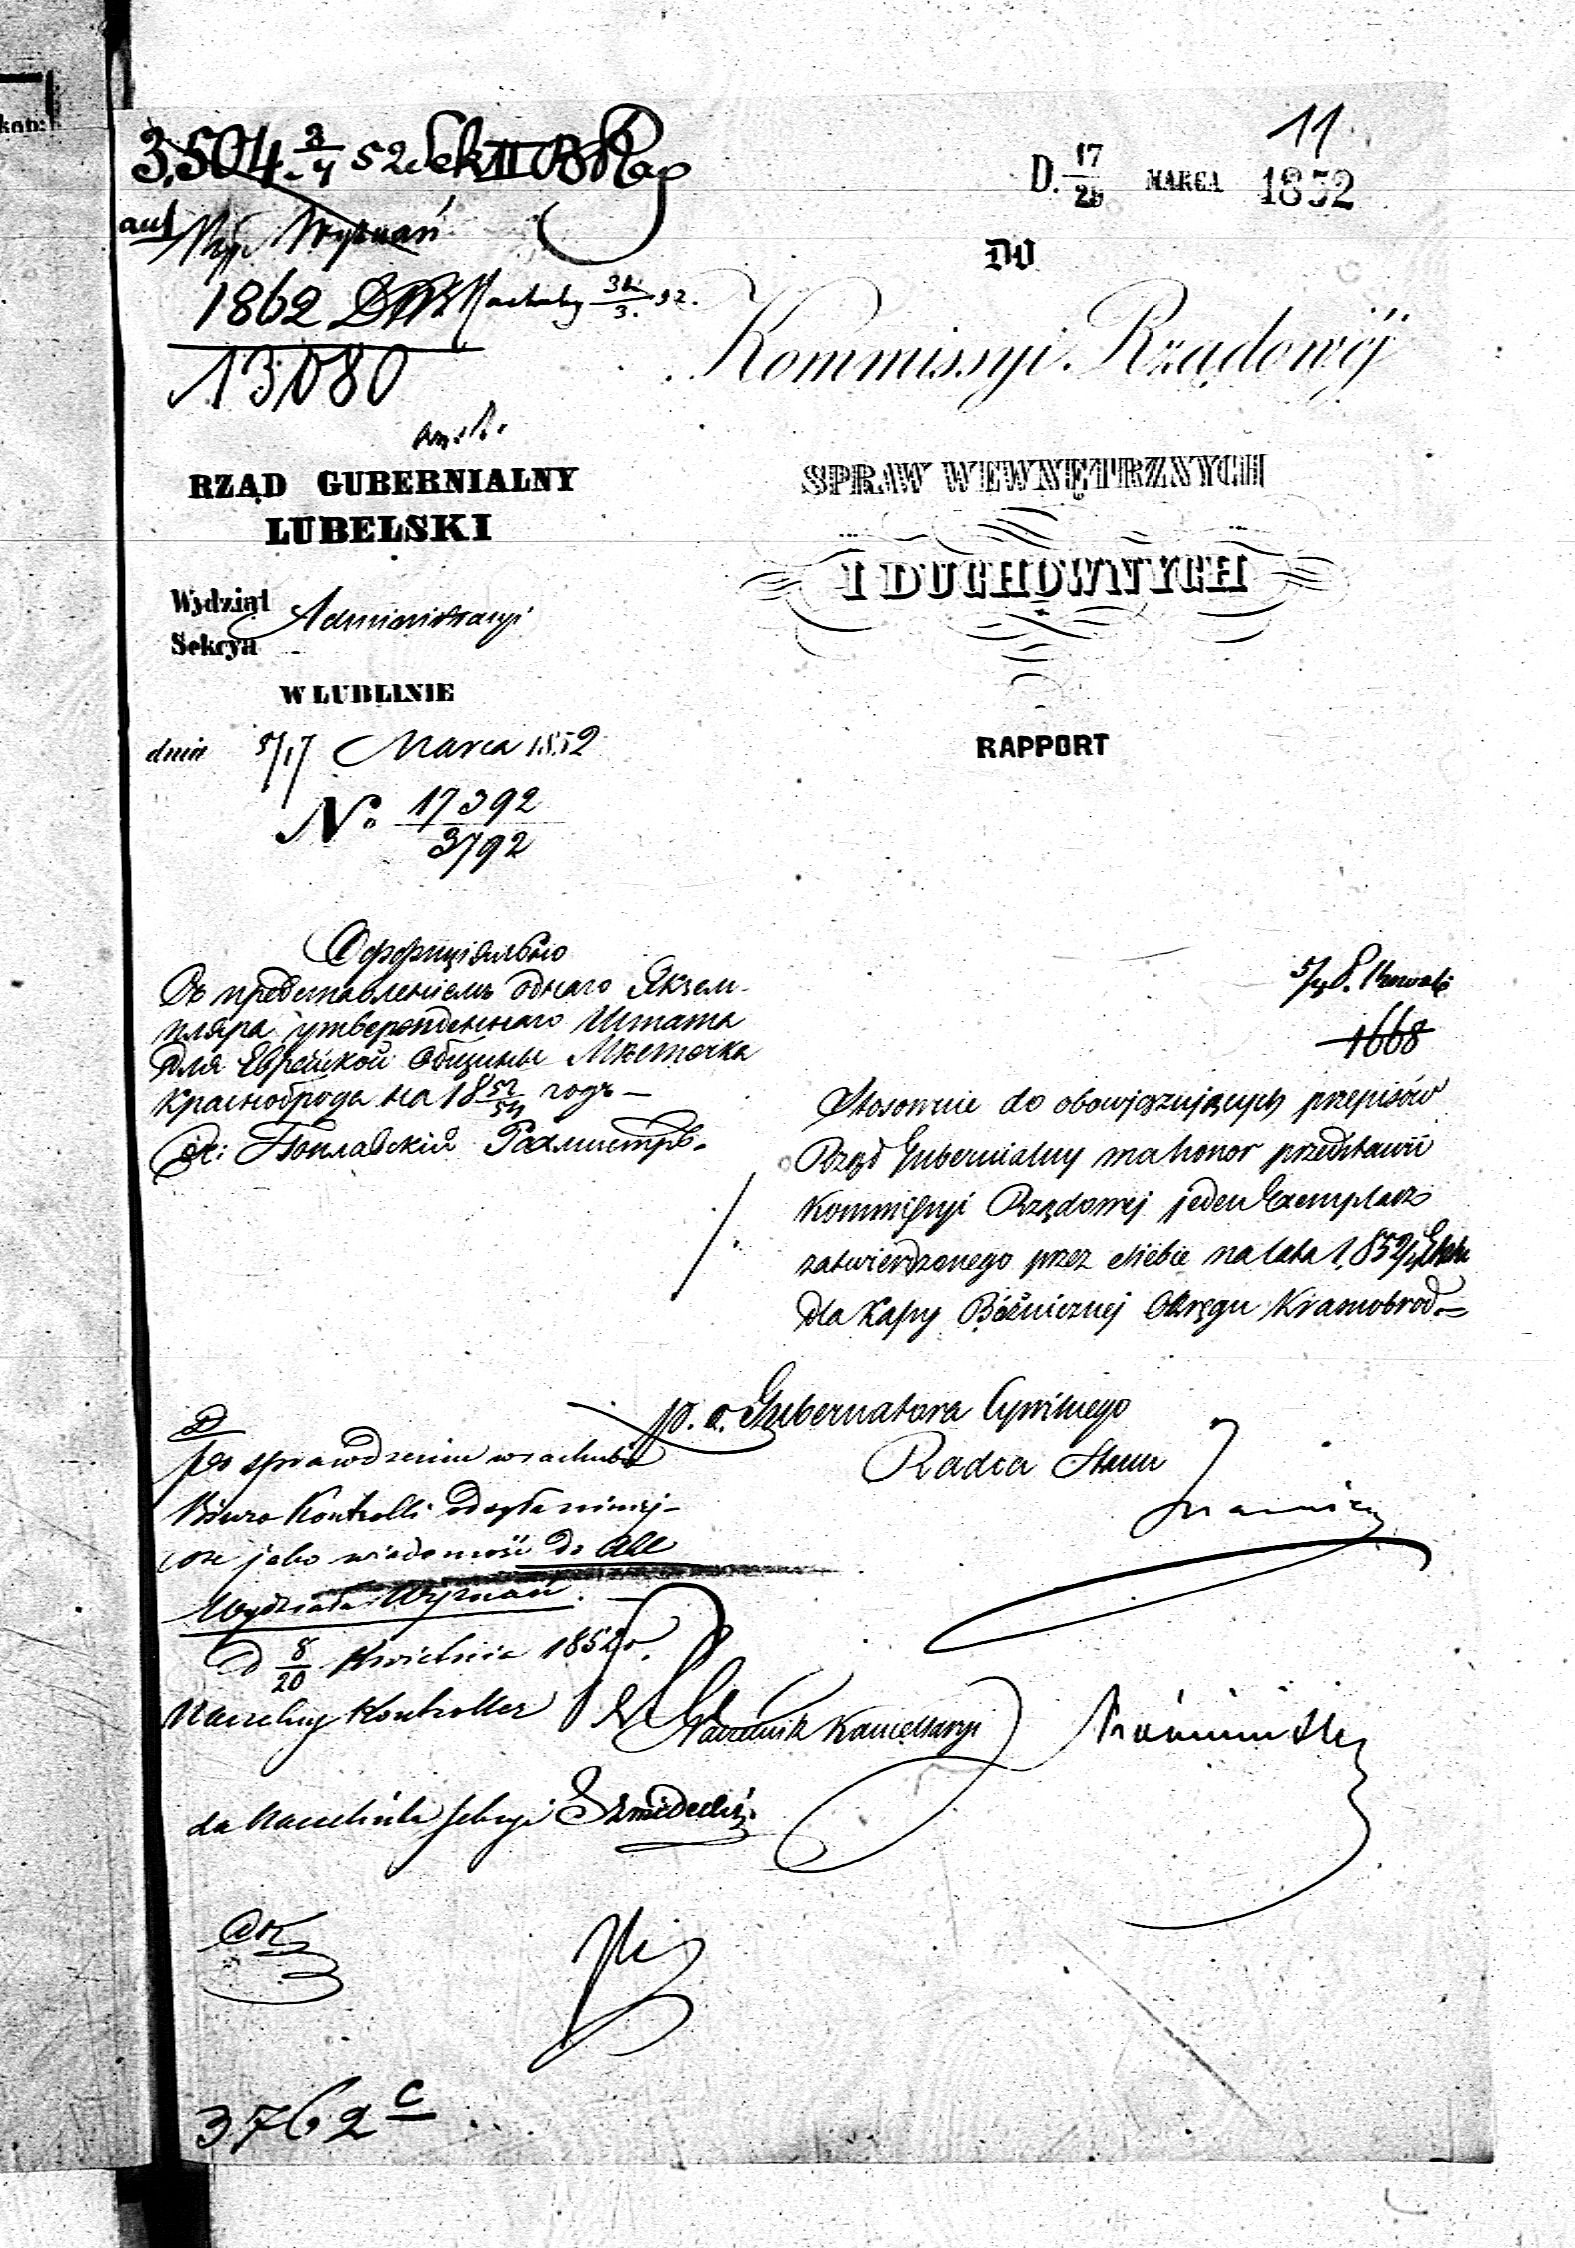 11
3,504 3/4 52 Sek II
D. 17/29 MARCA 1852
Wyznań
1862
13080
DO
Kommissyi Rządowéj
SPRAW WEWNĘTRZNYCH
I DUCHOWNYCH
RAPPORT
RZĄD GUBERNIALNY
LUBELSKI
Wydział Administracyi
Sekcya
W LUBLINIE
dnia 5/17 Marca 1852
No. 17392
3792
Оффиціально
Съ представленіемъ одного Экзем-
пляра утвержденнаго Штата
для Еврейской Общины Мѣстечка
Красноброда на 18 52/54 годъ —
За: Поплавскій
1668
Stosownie do obowiązujących przepisów
Rząd Gubernialny ma honor przedstawić
Kommissyi Rządowej jeden Exemplarz
zatwierdzonego przez siebie na lata 1852/4 Etatu
dla Kassy Bóżnicznej Okręgu Krasnobród
p. o. Gubernatora Cywilnego
Radca Stanu
Po sprawdzeniu w rachubie
Biuro Kontrolli odsyła niniej-
sze jako wiadomość do Akt
Wydziału Wyznań.
d 8/20 Kwietnia 1852 r.
Naczelny Kontroller
Naczelnik Kancellaryi
za Naczelnika Sekcyi
3762 c